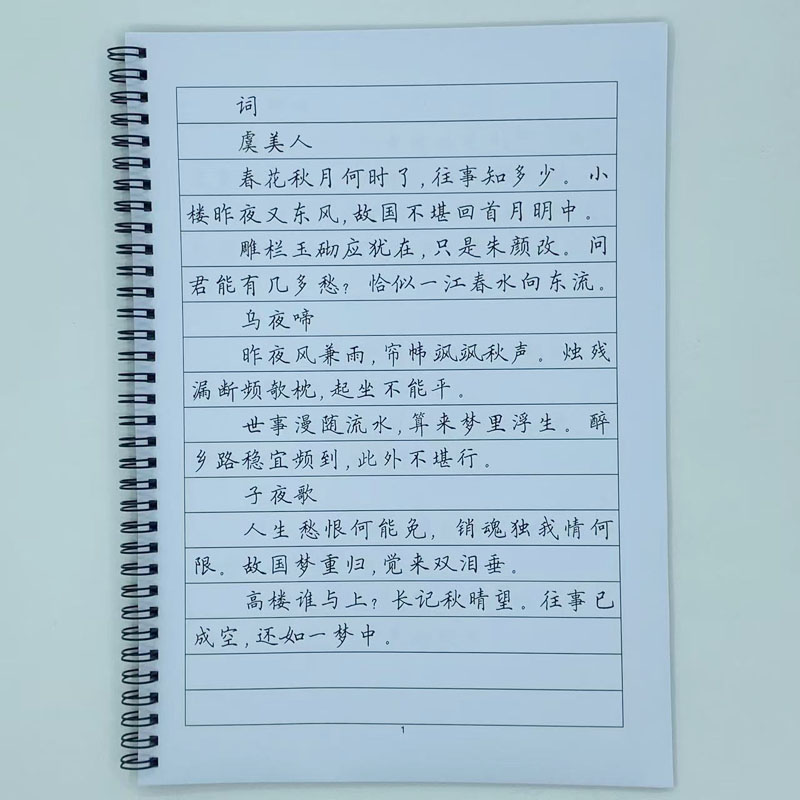 词
虞美人
春花秋月何时了,往事知多少。小
楼昨夜又东风,故国不堪回首月明中。
雕栏玉砌应犹在,只是朱颜改。问
君能有几多愁?恰似一江春水向东流。
乌夜啼
昨夜风兼雨,帘帏飒飒秋声。烛残
漏断频欹枕,起坐不能平。
世事漫随流水,算来梦里浮生。醉
乡路稳宜频到,此外不堪行。
子夜歌
人生愁恨何能免,销魂独我情何
限。故国梦重归,觉来双泪垂。
高楼谁与上?长记秋晴望。往事已
成空,还如一梦中。
1